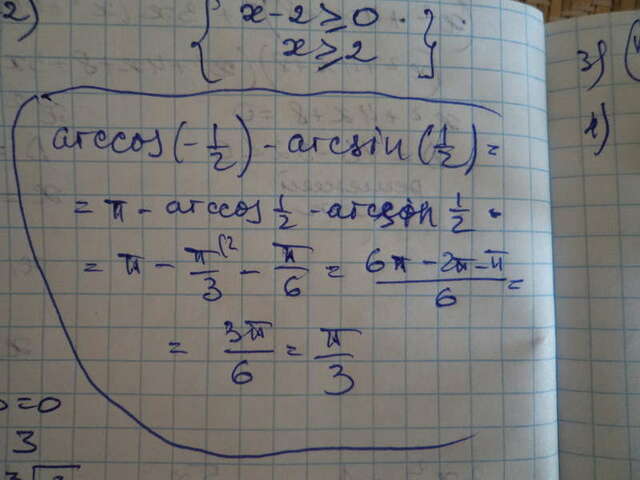 2)
{ x - 2 ≥ 0
x ≥ 2 }
3)
1)
arccos(-1/2) - arcsin(1/2) =
= π - arccos 1/2 - arcsin 1/2 =
= π - π/3 (2 - π/6 = (6π - 2π - π)/6 =
= 3π/6 = π/3
=0
3